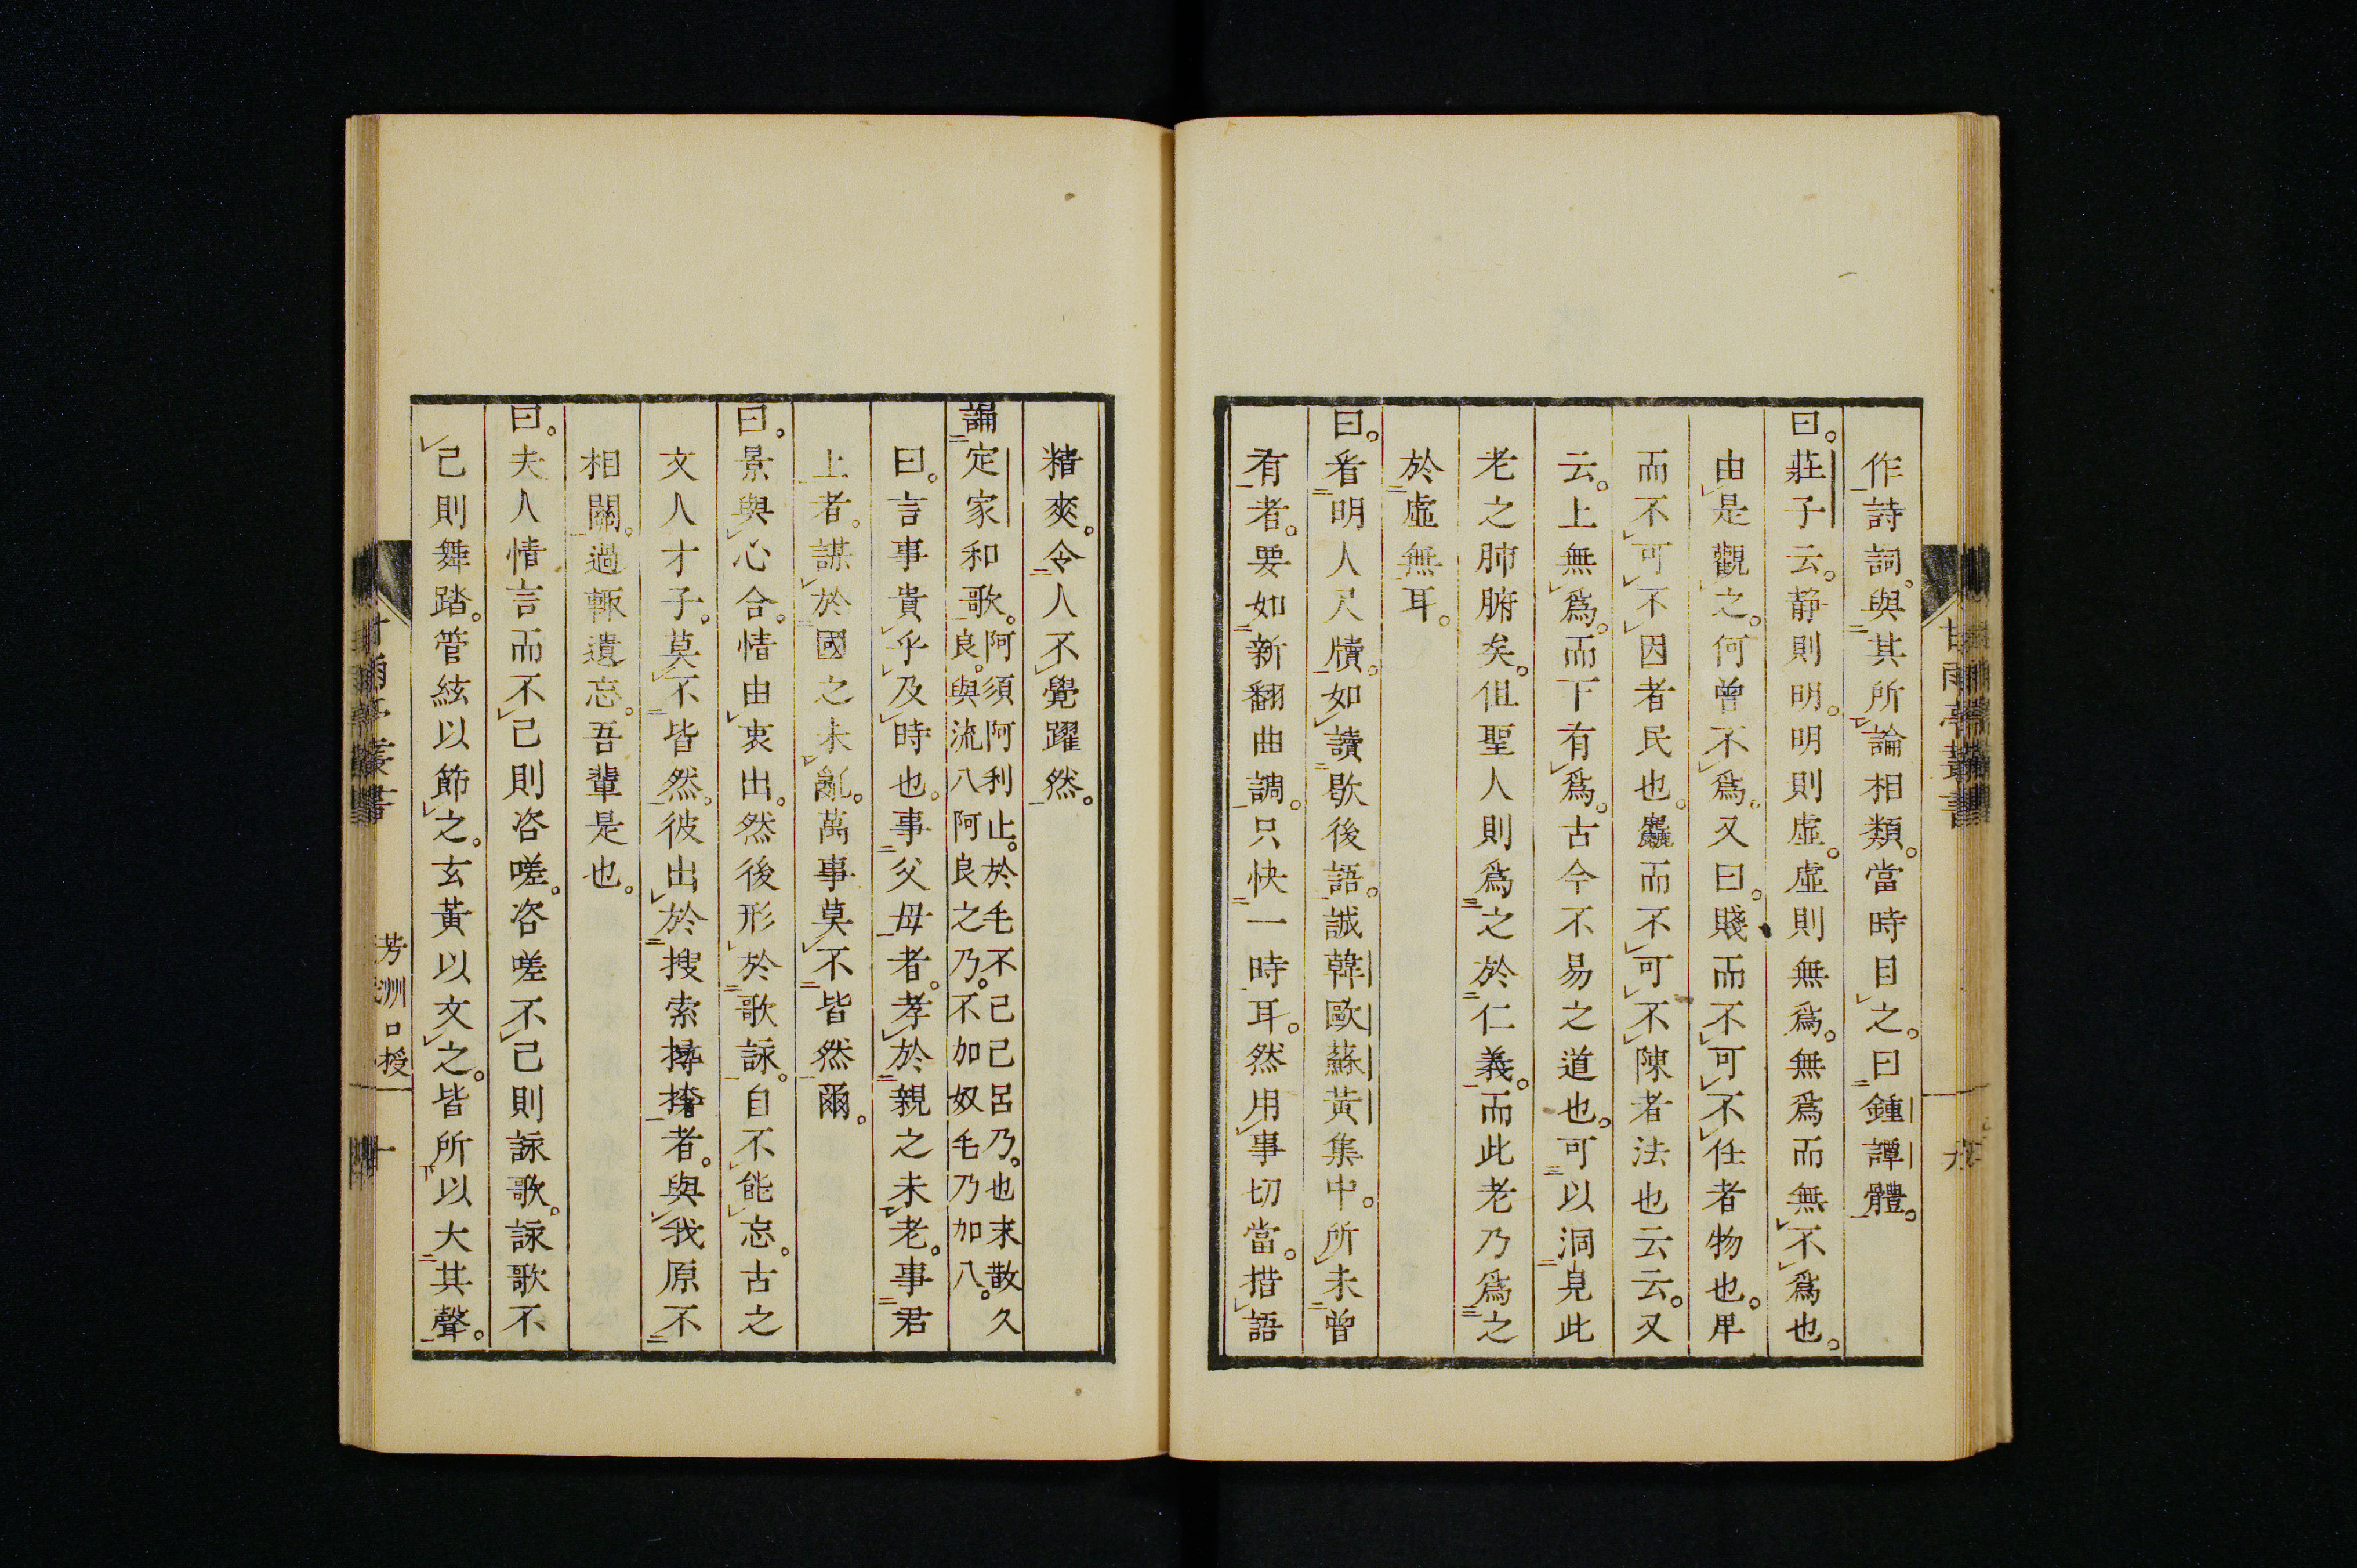 作詩詞。與其所論相類。當時目之。曰鍾譚體。
曰。莊子云。静則明。明則虛。虛則無爲。無爲而無不爲也。
由是觀之。何曾不爲。又曰。賤而不可不任者物也。卑
而不可不因者民也。麤而不可不陳者法也云云。又
云。上無爲。而下有爲。古今不易之道也。可以洞見此
老之肺腑矣。但聖人則爲之於仁義。而此老乃爲之
於虛無耳。
曰。看明人尺牘。如讀歇後語。誠韓歐蘇黃集中。所未曾
有者。要如新翻曲調。只快一時耳。然用事切當。措語
甘雨亭叢書
九
精爽。令人不覺躍然。
論定家和歌。阿須阿利止。於毛不己己呂乃。也末散久
良。與流八阿良之乃。不加奴毛乃加八。
曰。言事貴乎及時也。事父母者。孝於親之未老。事君
上者。謀於國之未亂。萬事莫不皆然爾。
曰。景與心合。情由衷出。然後形於歌詠。自不能忘。古之
文人才子。莫不皆然。彼出於搜索撏撦者。與我原不
相關。過輒遺忘。吾輩是也。
曰。夫人情言而不已則咨嗟。咨嗟不已則詠歌。詠歌不
已則舞踏。管絃以節之。玄黃以文之。皆所以大其聲。
甘雨亭叢書
芳洲口授
十